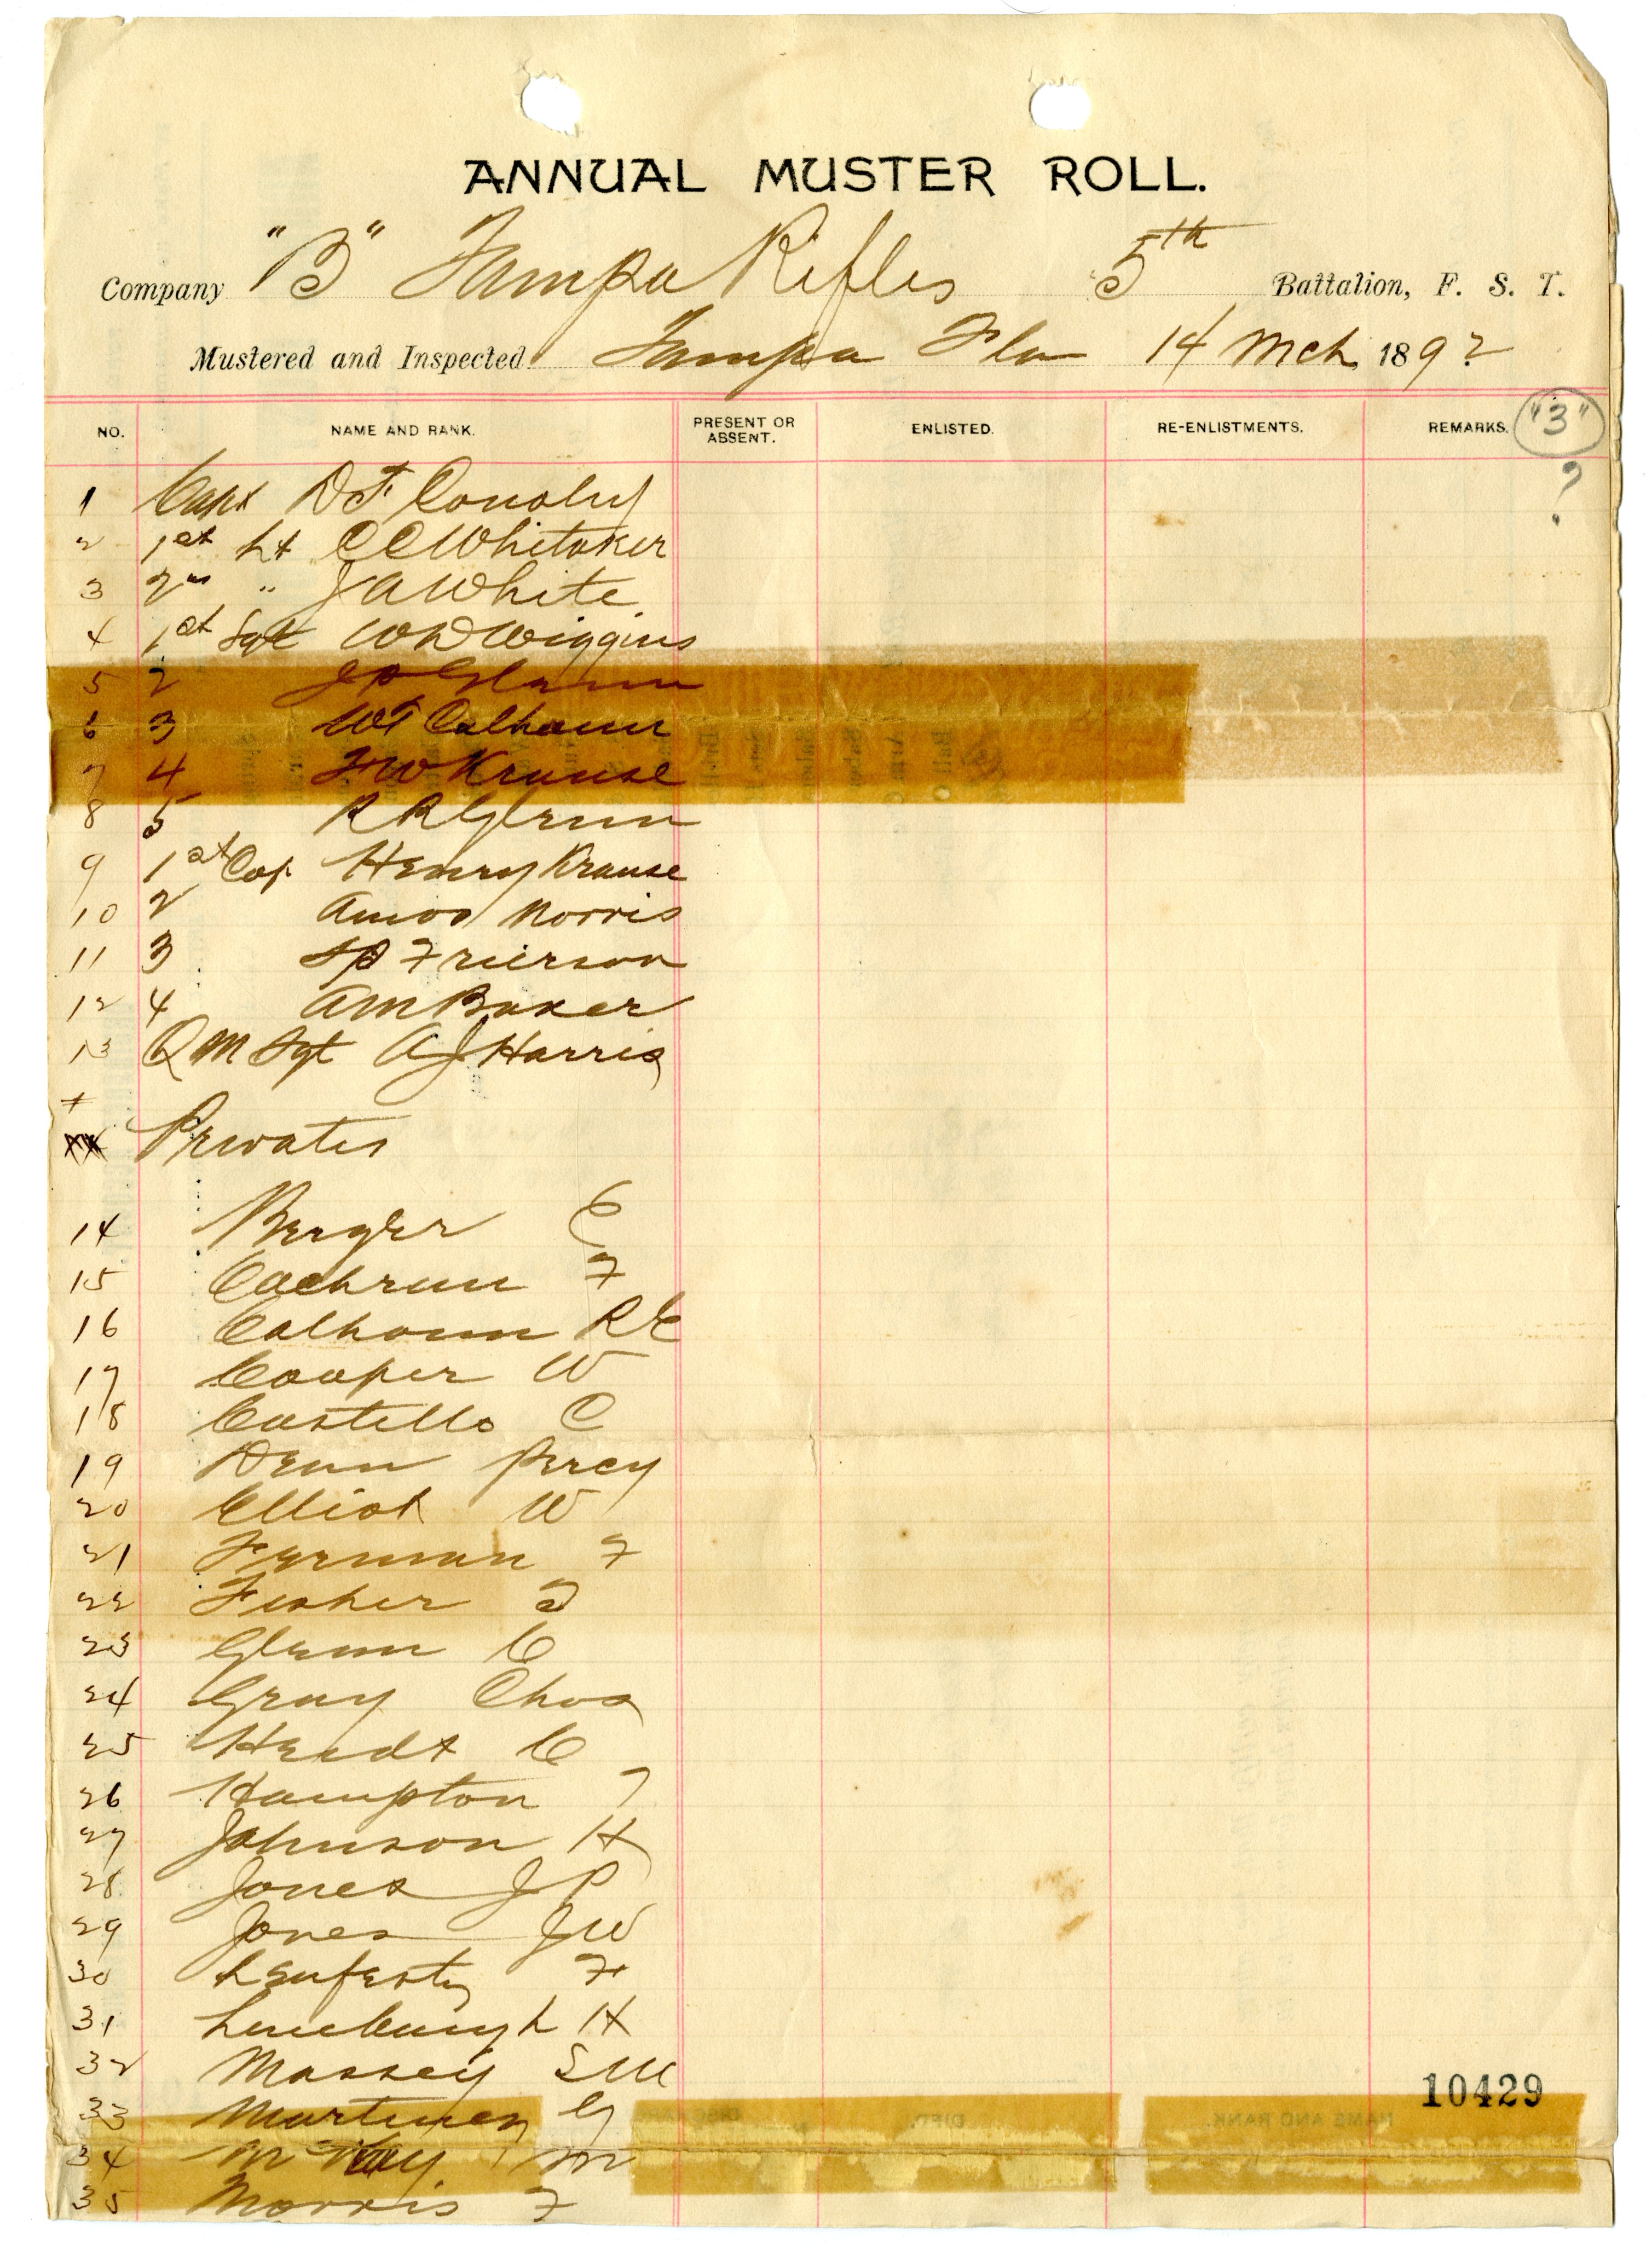 ANNUAL MUSTER ROLL.
Company "B" Tampa Rifles 5th Battalion, F. S. T.
Mustered and Inspected Tampa Fla 14 Mch 1892
NO. NAME AND RANK. PRESENT OR ABSENT. ENLISTED. RE-ENLISTMENTS. REMARKS. "3"
?
1 Capt D F Conoley
2 1st Lt C C Whitaker
3 2nd " J A White
4 1st Sgt W D Wiggins
5 2 J P Glenn
6 3 W T Calhoun
7 4 F W Krause
8 5 R R Glenn
9 1st Cop Henry Krause
10 2 Amos Norris
11 3 Frierson
12 4 A M Baker
13 Q M Sgt A J Harris
Privates
14 Berger E
15 Cochran F
16 Calhoun R E
17 Cooper W
18 Costello C
19 Denn Percy
20 Elliot W
21 Furman F
22 Fisher
23 Glenn C
24 Gray Chos
25 Hendt C
26 Hampton
27 Johnson H
28 Jones J P
29 Jones J W
30 Lenfesty F
31 Luneburgh H
32 Massey S M
33 Martinez G
34 McKay M
35 Morris F
10429